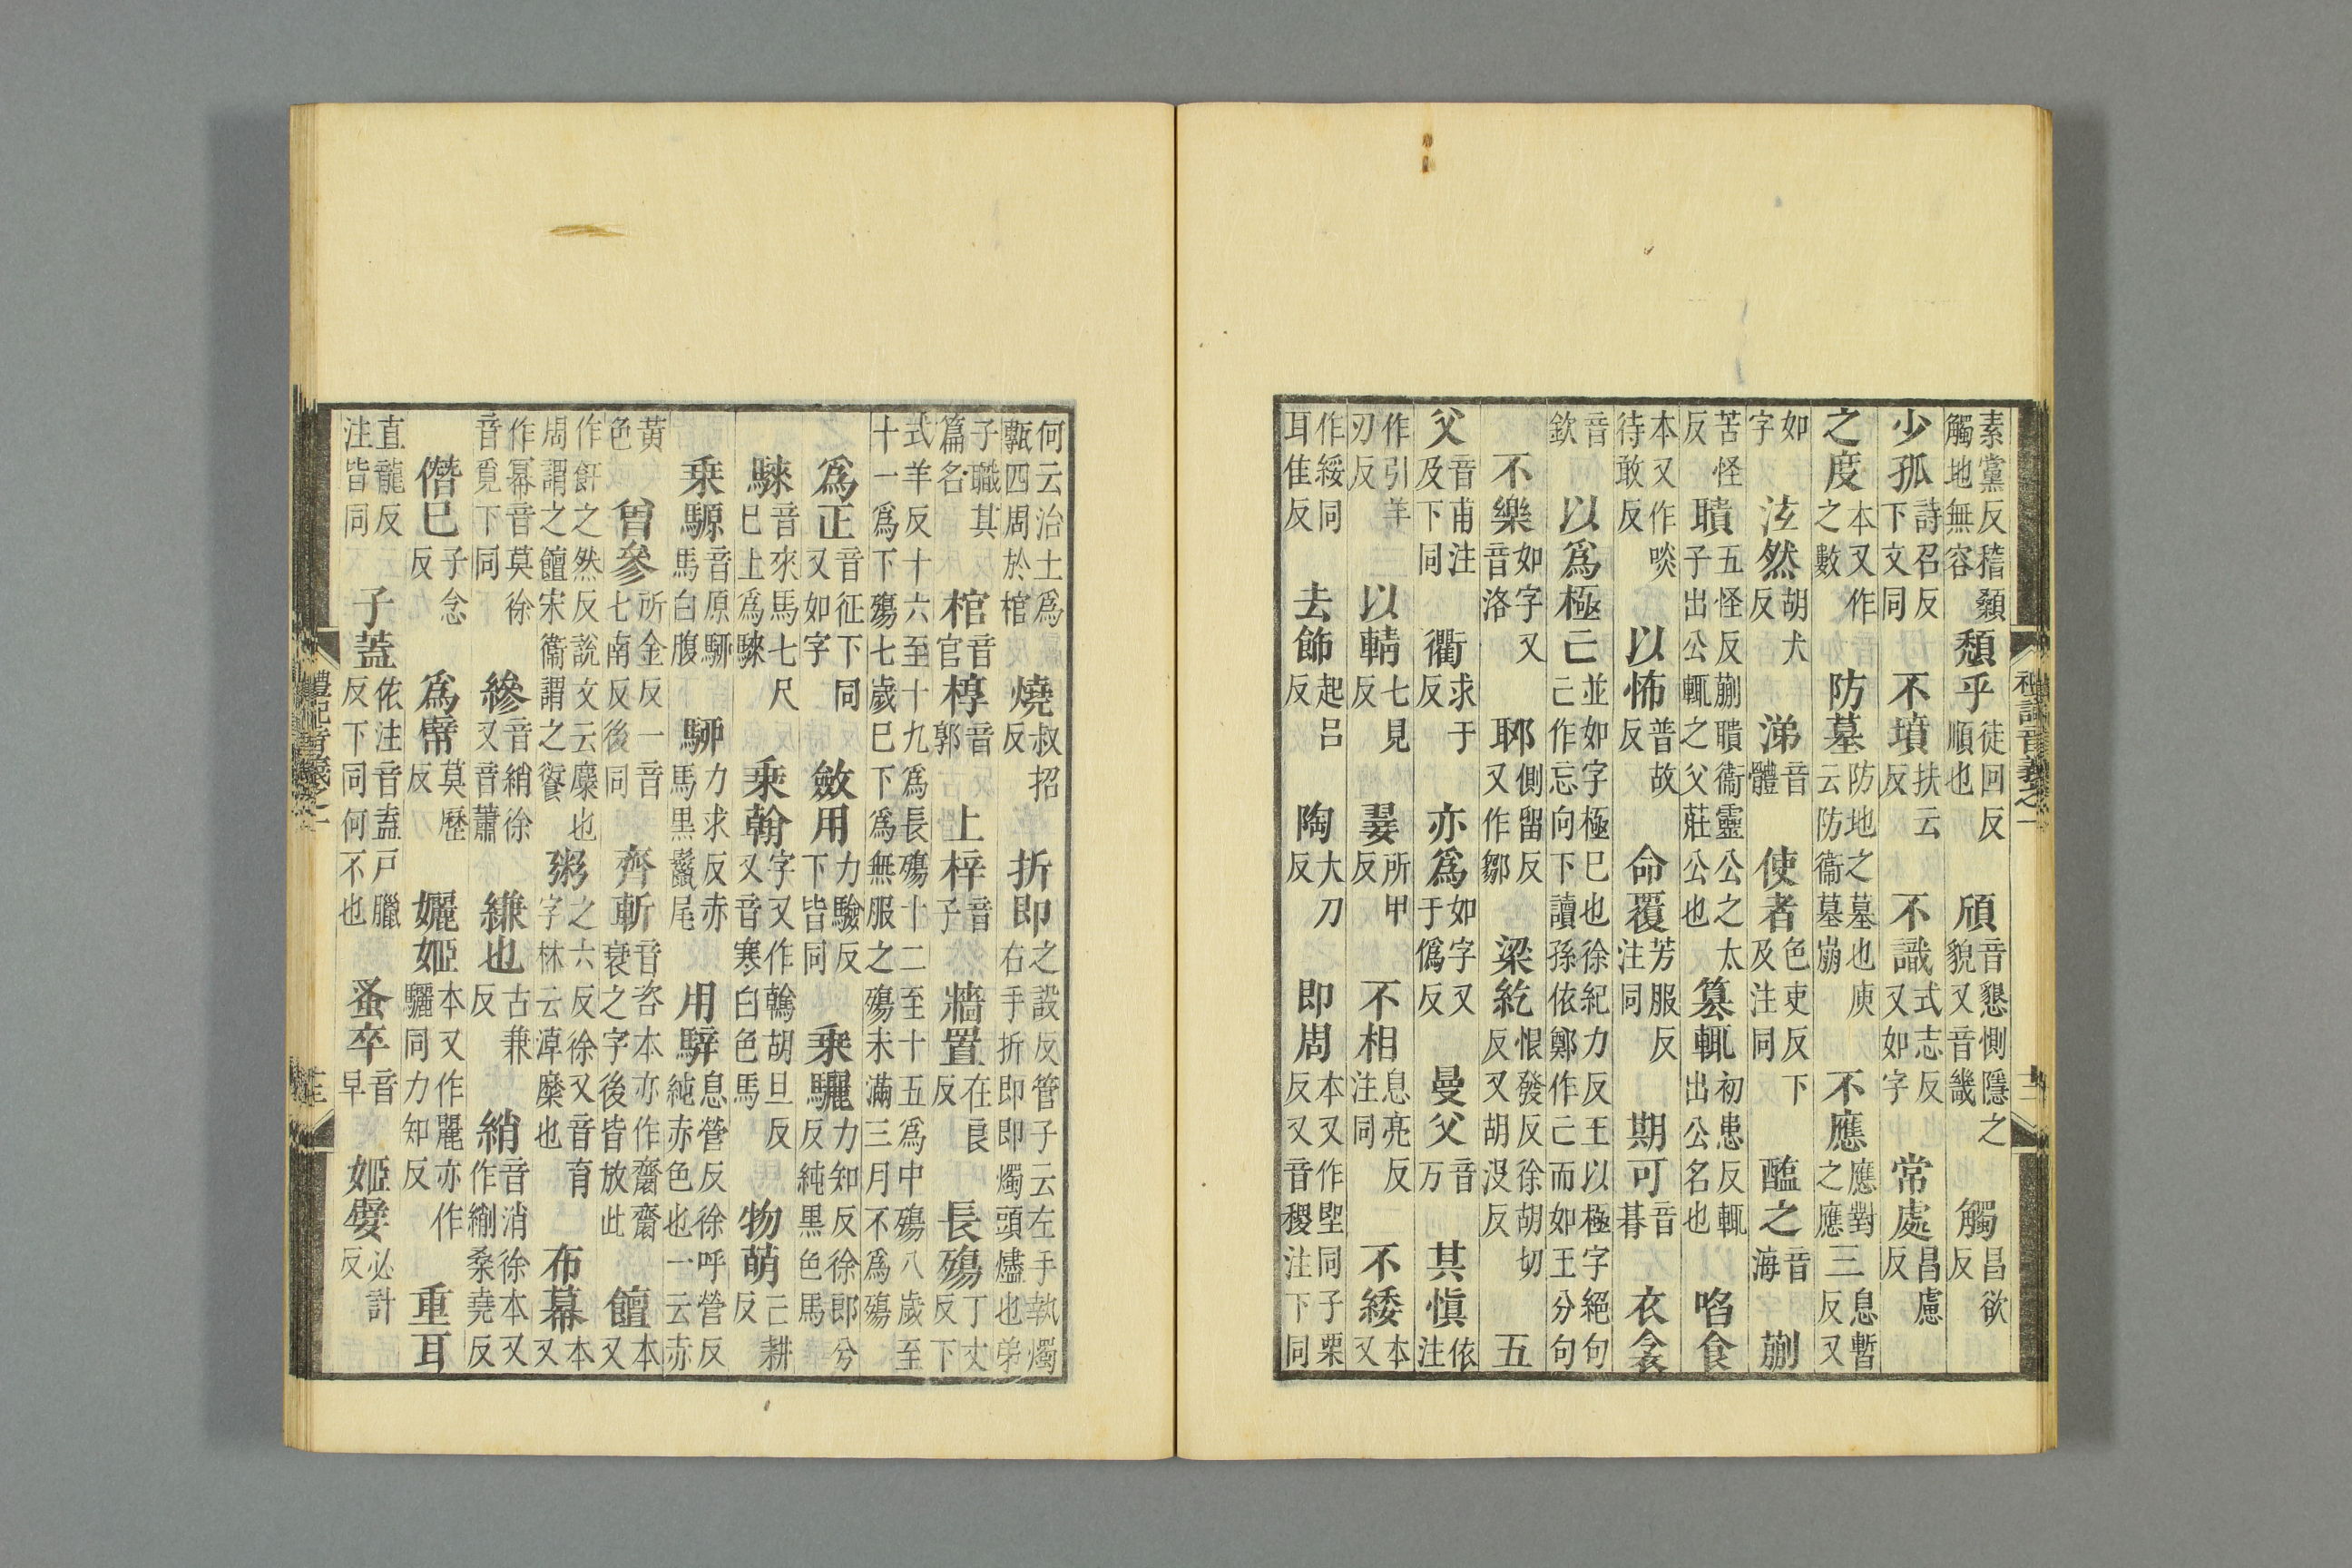 禮記音義之一 十二
素黨反稽顙觸地無容頹乎徒回反順也頎音懇惻隱之貌又音畿觸昌欲反
少孤詩召反下文同不墳扶云反不識式志反又如字常處昌慮反
之度本又作之數防墓防地之墓也庾云防衞墓崩不應應對之應三息暫反又
如字泫然胡犬反涕音體使者色吏反下及注同醢之音海蒯
苦怪反聵五怪反蒯聵衞靈公之太子出公輒之父莊公也篡輒初患反輒出公名也啗食
本又作啖待敢反以怖普故反命覆芳服反注同期可音朞衣衾
音欽以爲極亡並如字極巳也徐紀力反王以極字絕句亡作忘向下讀孫依鄭作亡而如王分句
不樂如字又音洛郰側留反又作鄒梁紇恨發反徐胡切反又胡没反五
父音甫注及下同衢求于反亦爲如字又于僞反曼父音万其愼依注
作引羊刃反以輤七見反翣所甲反不相息亮反注同不緌本又
作綏同耳隹反去飾起呂反陶大刀反即周本又作堲同子栗反又音稷注下同
何云治土爲甎四周於棺燒叔招反折即之設反管子云左手執燭右手折即即燭頭燼也弟
子職其篇名棺音官椁音郭上梓音子牆置在良反長殤丁丈反下
式羊反十六至十九爲長殤十二至十五爲中殤八歲至十一爲下殤七歲巳下爲無服之殤未滿三月不爲殤
爲正音征下同又如字斂用力驗反下皆同乗驪力知反徐郎兮反純黑色馬
騋音來馬七尺巳上爲騋乗翰字又作鶾胡旦反又音寒白色馬物萌亡耕反
乗騵音原駵馬白腹駵力求反赤馬黑鬣尾用騂息營反徐呼營反純赤色也一云赤
黃色曾參所金反一音七南反後同齊斬音咨本亦作齋衰之字後皆放此饘本又
作飦之然反說文云麋也周謂之饘宋衞謂之餰粥之六反徐又音育字林云淖糜也布幕本又
作幂音莫徐音覓下同縿音綃徐又音蕭縑也古兼反綃音消徐本又作綃桑堯反
僭巳子念反爲幦莫歷反孋姬本又作麗亦作驪同力知反重耳
直龍反注皆同子蓋依注音盍戸臘反下同何不也蚤卒音早姬嬖必計反
禮記音義之一